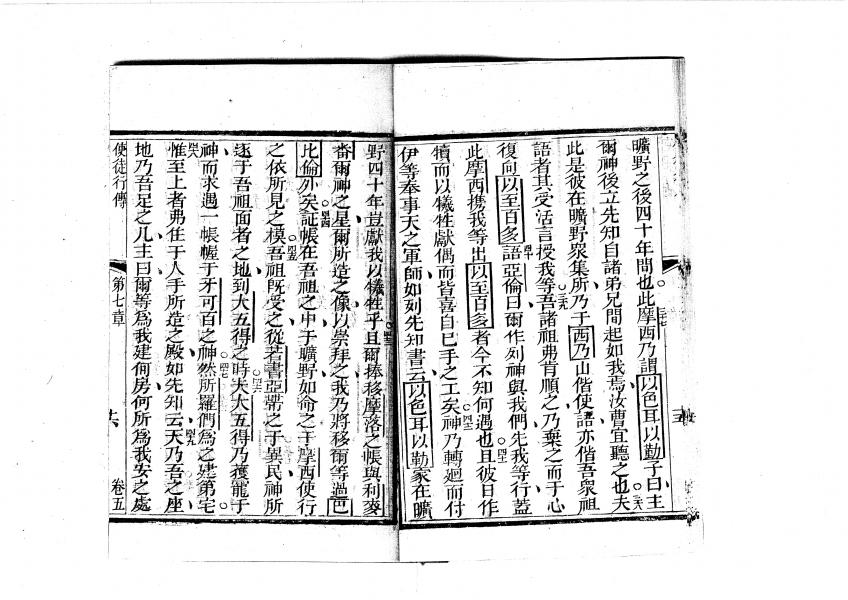 曠野之後四十年間也此摩西乃謂以色耳以勒子曰主
爾神後立先知自諸弟兄間起如我焉汝曹宜聽之也夫
此是彼在曠野衆集所乃于西乃山偕使語亦偕吾衆祖
語者其受活言授我等吾諸祖弗肯順之乃棄之而于心
復向以至百多語亞倫曰爾作列神與我們先我等行蓋
此摩西攜我等出以至百多者今不知何遇也且彼日作
犢而以犧牲獻偶而皆喜自己手之工矣神乃轉迴而付
伊等奉事天之軍師如列先知書云以色耳以勒家在曠
野四十年豈獻我以犧牲乎且爾捧移摩洛之帳與利麥
番爾神之星爾所造之像以崇拜之我乃將移爾等過巴
比倫外矣証帳在吾祖之中于曠野如命之于摩西使行
之依所見之模吾祖既受之從若書亞帶之于異民神所
逐于吾祖面者之地到大五得之時夫大五得乃獲寵于
神而求遇一帳幄于牙可百之神然所羅們爲之建第宅
惟至上者弗住于人手所造之殿如先知云天乃吾之座
地乃吾足之几主曰爾等爲我建何房何所爲我安之處
使徒行傳 第七章 卷五